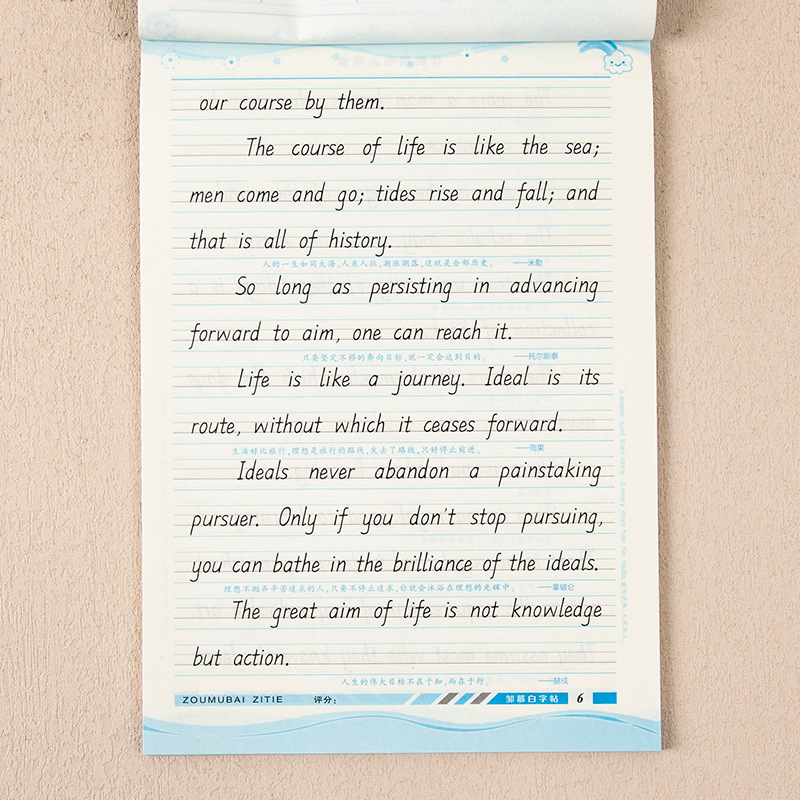 our course by them.
The course of life is like the sea;
men come and go; tides rise and fall; and
that is all of history.
人的一生如同大海,人来人往,潮涨潮落,这就是全部历史。 ——米勒
So long as persisting in advancing
forward to aim, one can reach it.
只要坚定不移的奔向目标,就一定会达到目的。 ——托尔斯泰
Life is like a journey. Ideal is its
route, without which it ceases forward.
生活好比旅行,理想是旅行的路线,失去了路线,只好停止前进。 ——雨果
Ideals never abandon a painstaking
pursuer. Only if you don't stop pursuing,
you can bathe in the brilliance of the ideals.
理想不抛弃辛苦追求的人,只要不停止追求,你就会沐浴在理想的光辉中。 ——拿破仑
The great aim of life is not knowledge
but action.
人生的伟大目标不在于知,而在于行。 ——赫胥
2.easier said than done. 3.every man has his faults.金无足赤,人无完人。
ZOUMUBAI ZITIE 评分: 邹慕白字帖 6